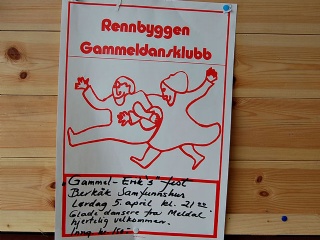 Rennbyggen
Gammeldansklubb
"Gammel-Erik's" fest
Berkåk Samfunnshus
Lørdag 5. april kl. 21
Glade dansere fra Meldal
hjertelig velkommen.
Inng. kr.